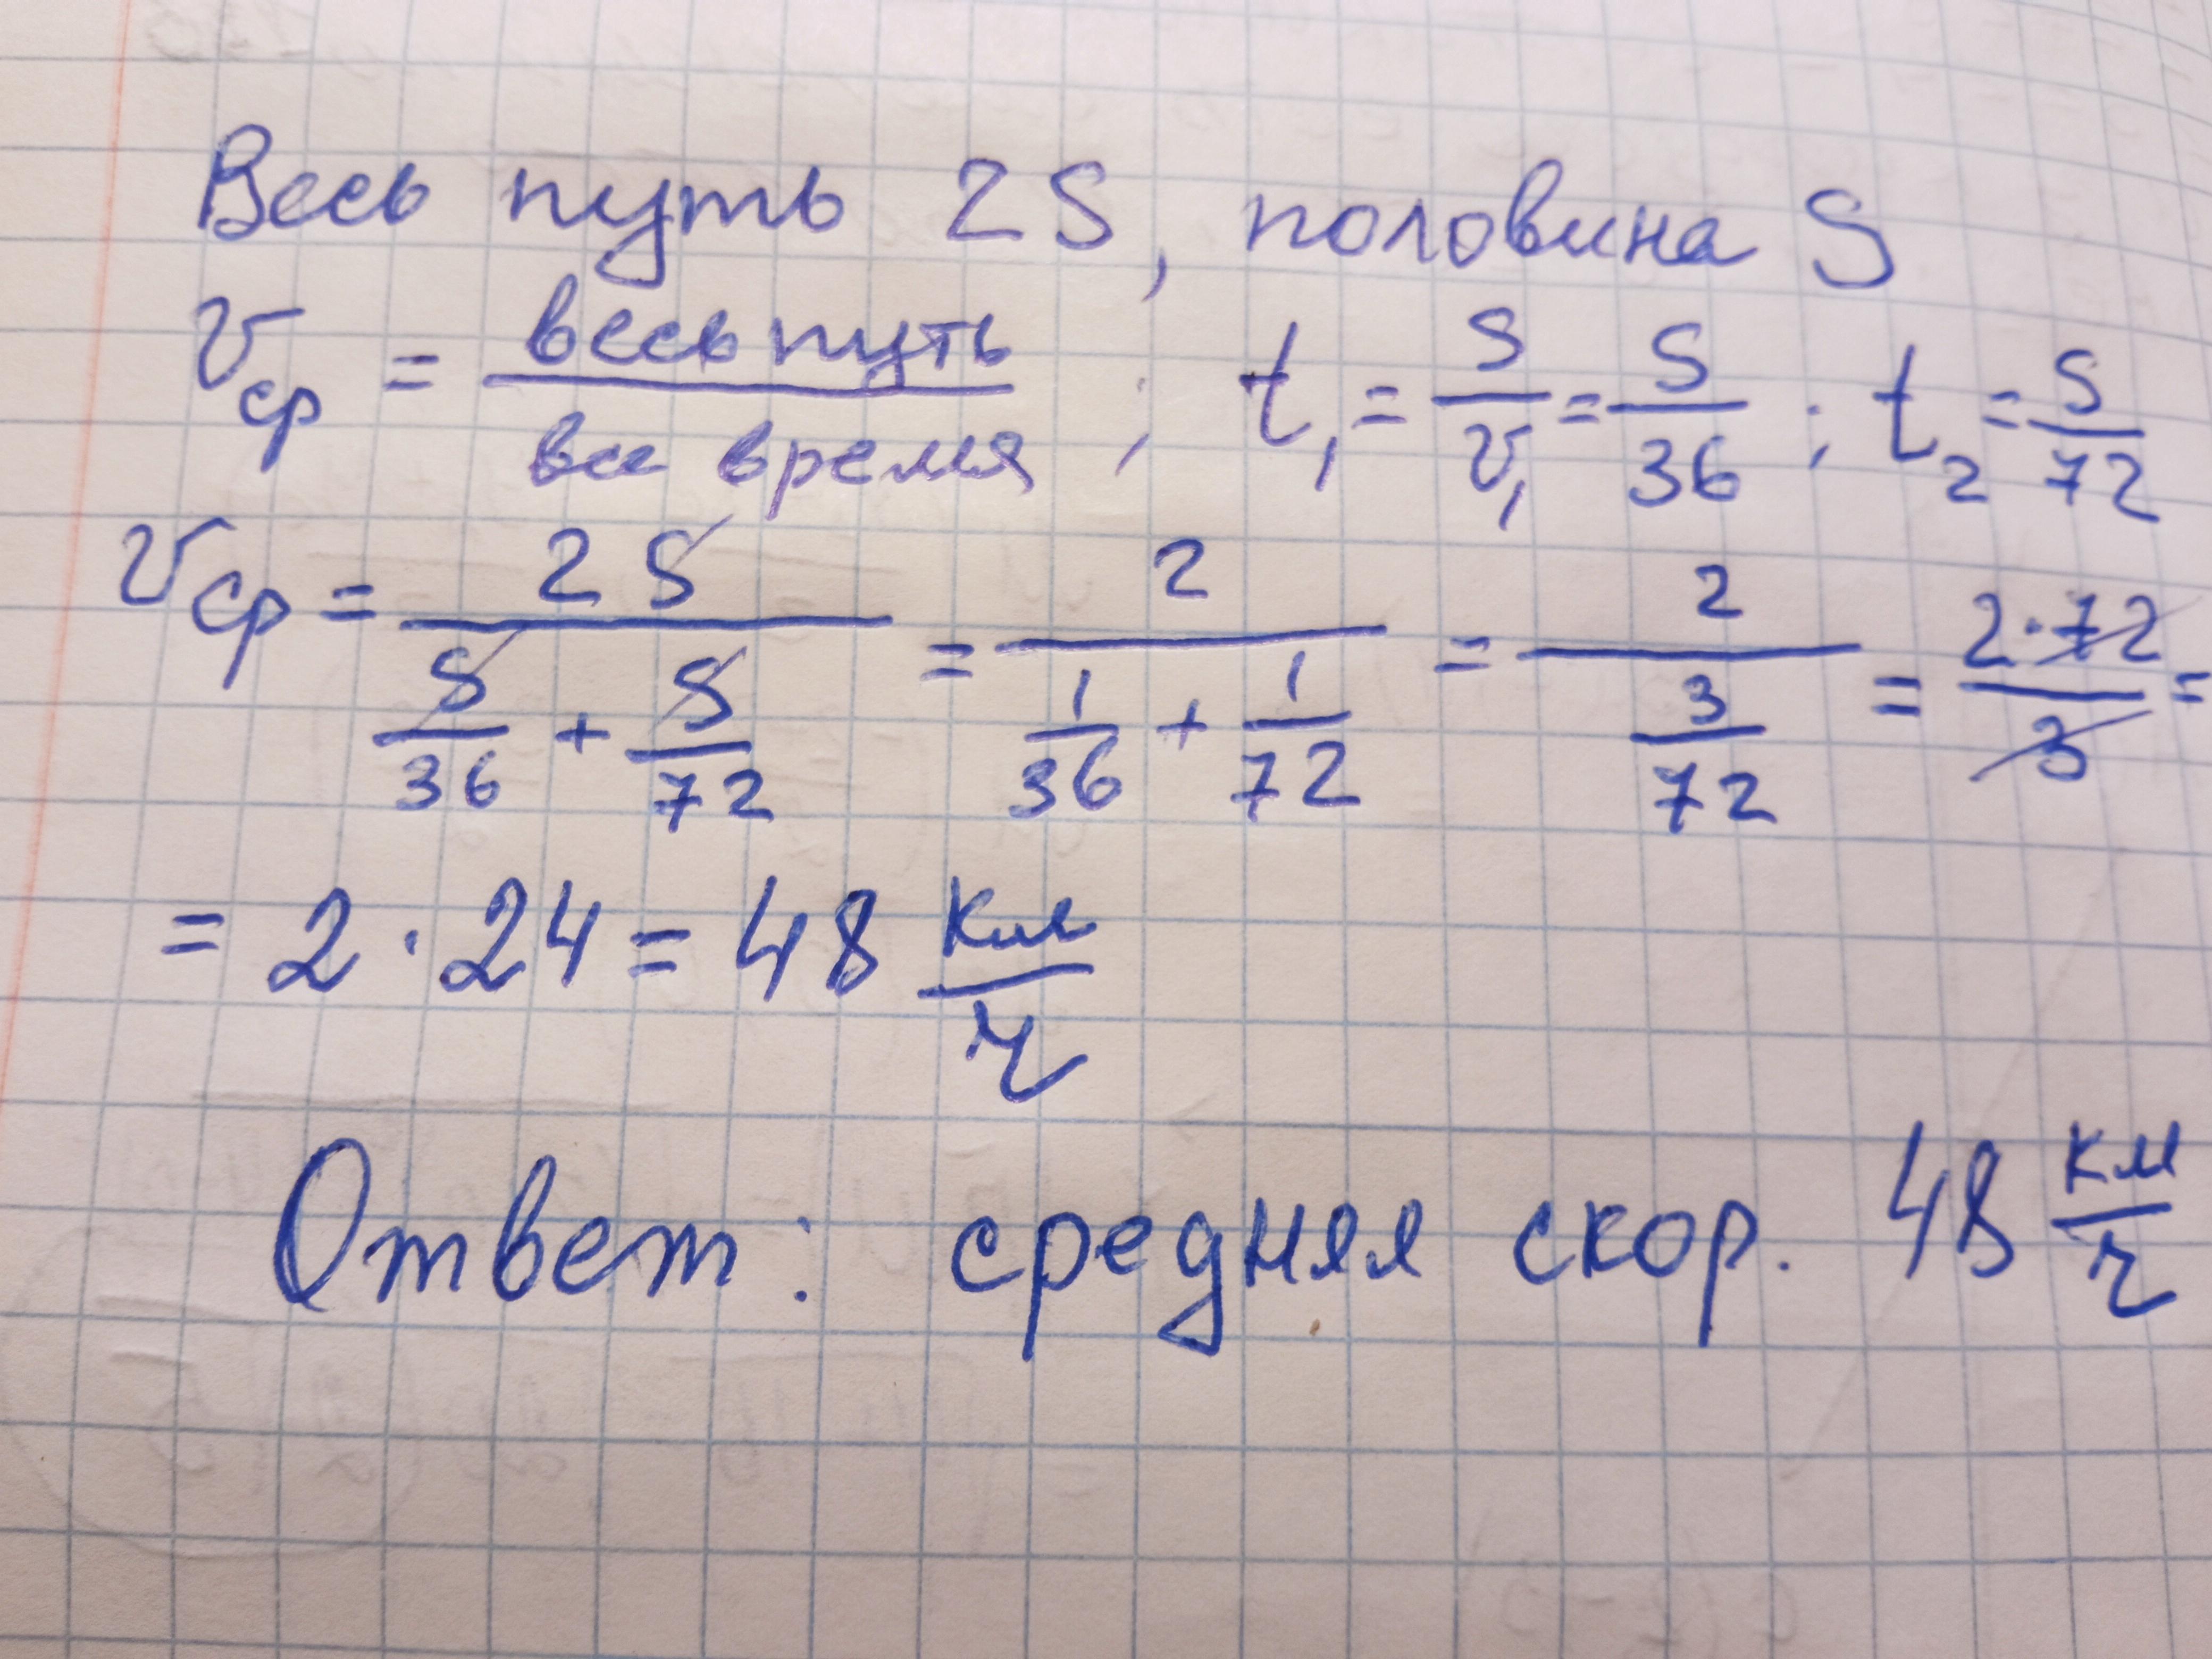 Весь путь 2S, половина S
v_ср = весь путь / все время ; t₁ = S/v₁ = S/36 ; t₂ = S/72
v_ср = 2S / (S/36 + S/72) = 2 / (1/36 + 1/72) = 2 / (3/72) = 2·72/3 =
= 2 · 24 = 48 км/ч
Ответ: средняя скор. 48 км/ч